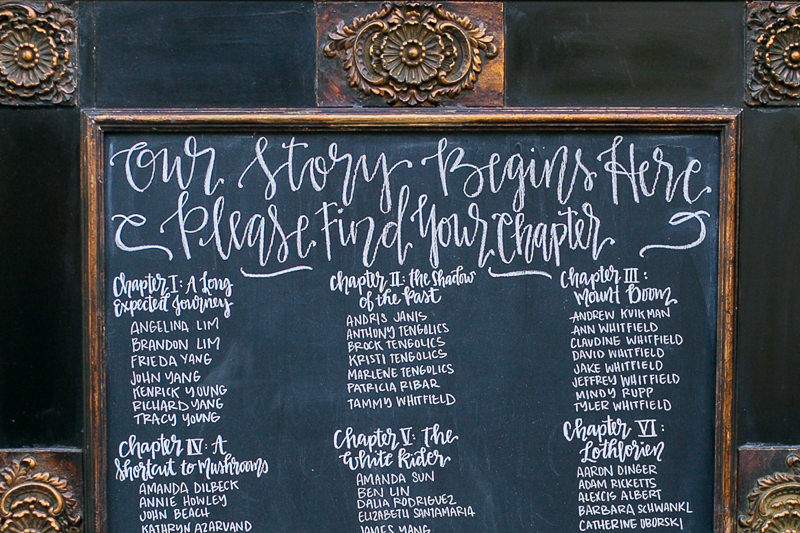 Our Story Begins Here
Please Find Your Chapter
Chapter I: A Long
Expected Journey
ANGELINA LIM
BRANDON LIM
FRIEDA YANG
JOHN YANG
KENRICK YOUNG
RICHARD YANG
TRACY YOUNG
Chapter II: the Shadow
of the Past
ANDRIS JANIS
ANTHONY TENGOLICS
BROCK TENGOLICS
KRISTI TENGOLICS
MARLENE TENGOLICS
PATRICIA RIBAR
TAMMY WHITFIELD
Chapter III:
Mount Doom
ANDREW KUIKMAN
ANN WHITFIELD
CLAUDINE WHITFIELD
DAVID WHITFIELD
JAKE WHITFIELD
JEFFREY WHITFIELD
MINDY RUPP
TYLER WHITFIELD
Chapter IV: A
Shortcut to Mushrooms
AMANDA DILBECK
ANNIE HOWLEY
JOHN BEACH
KATHRYN AZARVAND
Chapter V: The
White Rider
AMANDA SUN
BEN LIN
DALIA RODRIGUEZ
ELIZABETH SANTAMARIA
JAMES YANG
Chapter VI:
Lothlorien
AARON DINGER
ADAM RICKETTS
ALEXCIS ALBERT
BARBARA SCHWANKL
CATHERINE OBORSKI